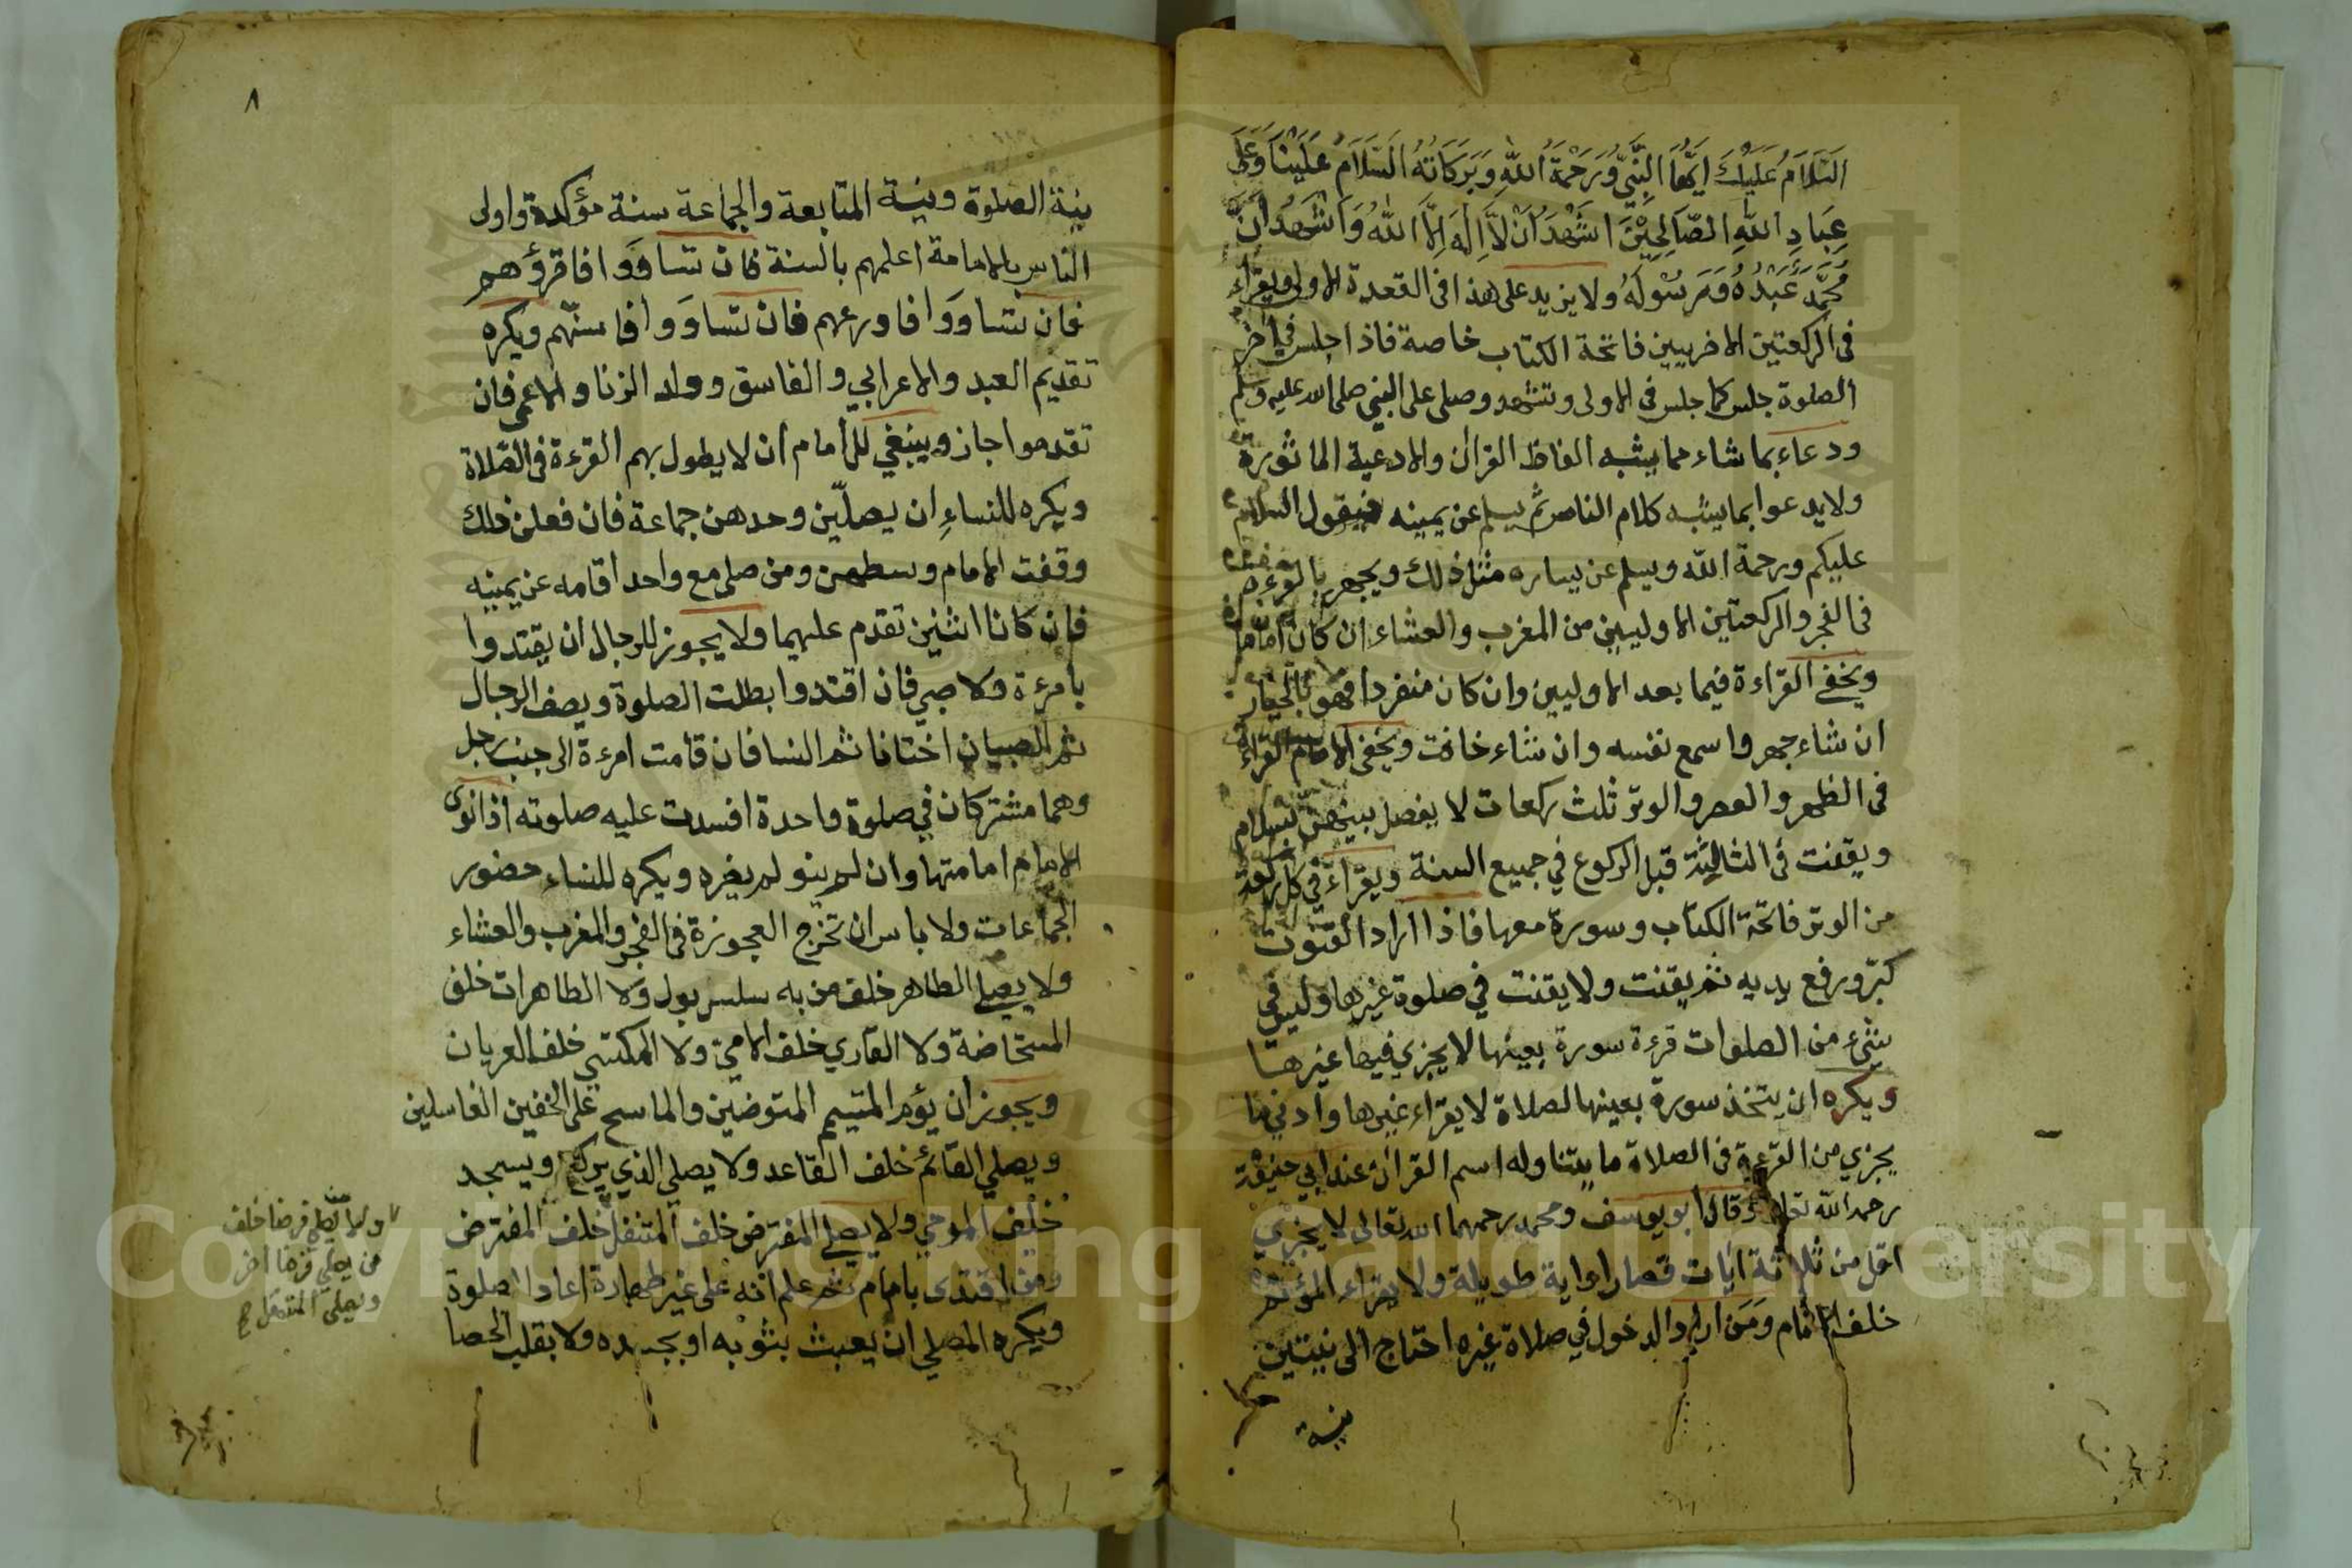 السَّلَامُ عَلَيْكَ اَيُّهَا النَّبِيُّ وَرَحْمَةُ اللهِ وَبَرَكَاتُهُ السَّلَامُ عَلَيْنَا وَعَلَى
عِبَادِ اللهِ الصَّالِحِيْنَ اَشْهَدُ اَنْ لَا اِلٰهَ اِلَّا اللهُ وَاَشْهَدُ اَنَّ
مُحَمَّدً عَبْدُهُ وَرَسُوْلُهُ ولا يزيد على هذا فى القعدة الاولى ويقراء
فى الركعتين الاخريين فاتحة الكتاب خاصة فاذا جلس في اخر
الصلوة جلس كما جلس فى الاولى وتشهد وصلى على النبي صلى الله عليه وسلم
ودعاء بما شاء مما يشبه الفاظ القران والادعية الماثورة
ولا يدعوا بما يشبه كلام الناس ثم يسلم عن يمينه فيقول السلام
عليكم ورحمة الله ويسلم عن يساره مثل ذلك ويجهر بالقرءة
فى الفجر والركعتين الاوليين من المغرب والعشاء ان كان اماما
ويخفي القراءة فيما بعد الاوليين وان كان منفردا فهو بالخيار
ان شاء جهر واسمع نفسه وان شاء خافت ويخفى الامام القراءة
فى الظهر والعصر والوتر ثلث ركعات لا يفصل بينهن بسلام
ويقنت فى الثالثة قبل الركوع في جميع السنة ويقراء في كل ركعة
من الوتر فاتحة الكتاب وسورة معها فاذا اراد القنوت
كبّر ورفع يديه ثم يقنت ولا يقنت في صلوة غيرها وليس في
شيء من الصلوات قرءة سورة بعينها لا يجزي فيها غيرها
ويكره ان يتخذ سورة بعينها لصلاة لا يقراء غيرها وادنى ما
يجزي من القرءة فى الصلاة ما يتناوله اسم القران عند ابي حنيفة
رحمه الله تعالى وقال ابو يوسف ومحمد رحمهما الله تعالى لا يجزي
اقل من ثلاثة ايات قصار او اية طويلة ولا يقراء المؤتم
خلف الامام وَمَن اراد الدخول في صلاة غيره احتاج الى نيتين
نية
٨
نية الصلوة ونية المتابعة والجماعة سنة مؤكدة واولى
الناس بالامامة اعلمهم بالسنة فان تساوَوا فاقرؤهم
فان تساوَوا فاورعهم فان تساوَوا فاسنّهم ويكره
تقديم العبد والاعرابي والفاسق وولد الزنا والاعمى فان
تقدموا جاز وينبغي للامام ان لا يطول بهم القرءة فى الصّلاة
ويكره للنساءِ ان يصلّين وحدهن جماعة فان فعلن ذلك
وقفت الامام وسطهن ومن صلى مع واحد اقامه عن يمينه
فان كانا اثنين تقدم عليهما ولا يجوز للرجال ان يقتدوا
بامرءة ولا صبي فان اقتدوا بطلت الصلوة ويصف الرجال
ثم الصبيان اختانا ثم النسا فان قامت امرءة الى جنب رجل
وهما مشتركان في صلوة واحدة افسدت عليه صلوته اذا نوى
الامام امامتها وان لم ينو لم يضره ويكره للنساء حضور
الجماعات ولا باس ان تخرج العجوزة فى الفجر والمغرب والعشاء
ولا يصلي الطاهر خلف من به سلس بول ولا الطاهرات خلف
المستحاضة ولا القاري خلف الاميّ ولا المكتسي خلف العريان
ويجوز ان يؤم المتيمم المتوضين والماسح على الخفين الغاسلين
ويصلي القائم خلف القاعد ولا يصلي الذي يركع ويسجد
خلف المومي ولا يصلي المفترض خلف المتنفل خلف المفترض
ومن اقتدى بامام ثم علم انه على غير طهارة اعاد الصلوة
ويكره المصلي ان يعبث بثوبه او بجسده ولا يقلب الحصا
فرضا خلف
من يصلي فرضا اخر
ويصلي المتنفل
Copyright © King Saud University
1957